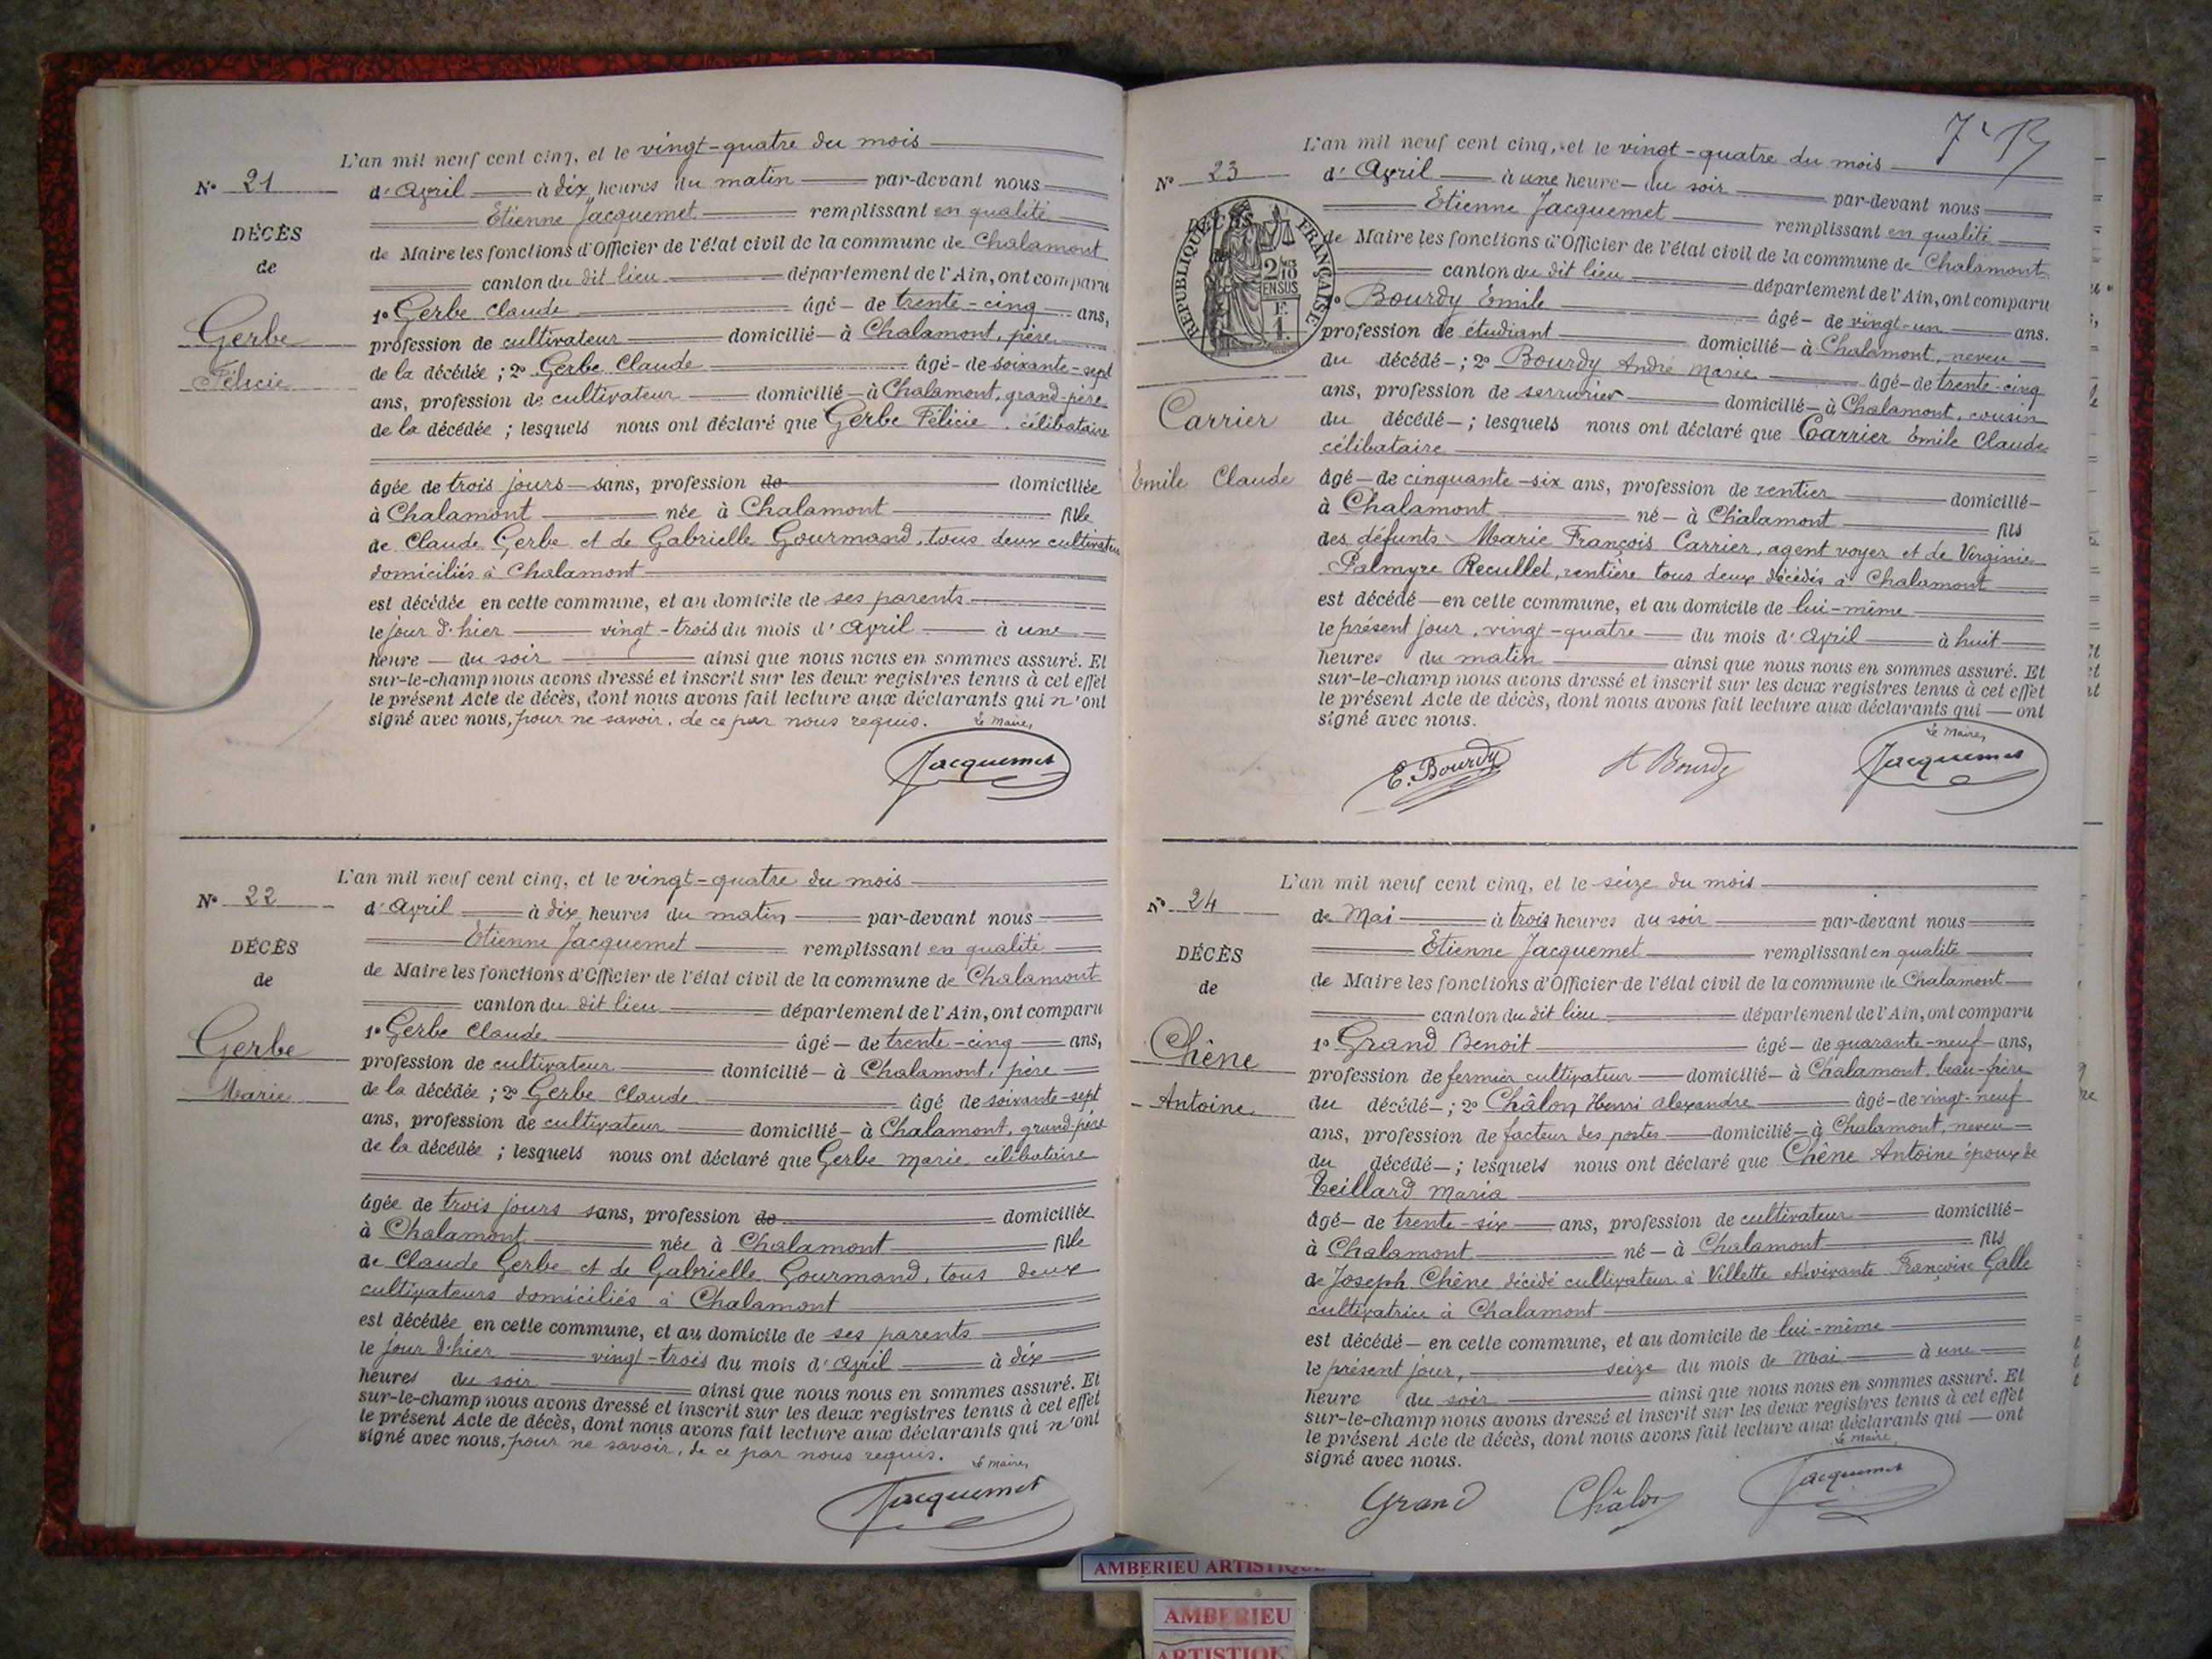 L'an mil neuf cent cinq, et le vingt-quatre du mois
N° 21
d'Avril à dix heures du matin par-devant nous
Etienne Jacquemet remplissant en qualité
DÉCÈS
de Maire les fonctions d'Officier de l'état civil de la commune de Chalamont
de
canton du dit lieu département de l'Ain, ont comparu
1° Gerbe Claude âgé de trente-cinq ans,
Gerbe
profession de cultivateur domicilié à Chalamont, père
Félicie
de la décédée ; 2° Gerbe Claude âgé de soixante-sept
ans, profession de cultivateur domicilié à Chalamont, grand-père
de la décédée ; lesquels nous ont déclaré que Gerbe Félicie, célibataire
âgée de trois jours sans, profession de domiciliée
à Chalamont née à Chalamont fille
de Claude Gerbe et de Gabrielle Gourmand, tous deux cultivateurs
domiciliés à Chalamont
est décédée en cette commune, et au domicile de ses parents
le jour d'hier vingt-trois du mois d'Avril à une
heure du soir ainsi que nous nous en sommes assuré. Et
sur-le-champ nous avons dressé et inscrit sur les deux registres tenus à cet effet
le présent Acte de décès, dont nous avons fait lecture aux déclarants qui n'ont
signé avec nous, pour ne savoir, de ce par nous requis. Le Maire,
Jacquemet
L'an mil neuf cent cinq, et le vingt-quatre du mois
N° 22
d'Avril à dix heures du matin par-devant nous
Etienne Jacquemet remplissant en qualité
DÉCÈS
de Maire les fonctions d'Officier de l'état civil de la commune de Chalamont
de
canton du dit lieu département de l'Ain, ont comparu
1° Gerbe Claude âgé de trente-cinq ans,
Gerbe
profession de cultivateur domicilié à Chalamont, père
Marie
de la décédée ; 2° Gerbe Claude âgé de soixante-sept
ans, profession de cultivateur domicilié à Chalamont, grand-père
de la décédée ; lesquels nous ont déclaré que Gerbe Marie célibataire
âgée de trois jours sans, profession de domiciliée
à Chalamont née à Chalamont fille
de Claude Gerbe et de Gabrielle Gourmand, tous deux
cultivateurs domiciliés à Chalamont
est décédée en cette commune, et au domicile de ses parents
le jour d'hier vingt-trois du mois d'Avril à dix
heures du soir ainsi que nous nous en sommes assuré. Et
sur-le-champ nous avons dressé et inscrit sur les deux registres tenus à cet effet
le présent Acte de décès, dont nous avons fait lecture aux déclarants qui n'ont
signé avec nous, pour ne savoir, de ce par nous requis. Le Maire,
Jacquemet
L'an mil neuf cent cinq, et le vingt-quatre du mois
N° 23
d'Avril à une heure du soir par-devant nous
Etienne Jacquemet remplissant en qualité
DÉCÈS
RÉPUBLIQUE FRANÇAISE
de Maire les fonctions d'Officier de l'état civil de la commune de Chalamont
canton du dit lieu département de l'Ain, ont comparu
1° Bourdy Emile âgé de vingt-un ans.
profession de étudiant domicilié à Chalamont, neveu
du décédé ; 2° Bourdy André Marie âgé de trente-cinq
ans, profession de serrurier domicilié à Chalamont, cousin
Carrier
du décédé ; lesquels nous ont déclaré que Carrier Emile Claude
célibataire
Emile Claude
âgé de cinquante-six ans, profession de rentier domicilié
à Chalamont né à Chalamont fils
des défunts Marie François Carrier, agent voyer et de Virginie
Palmyre Recullet, rentière tous deux décédés à Chalamont
est décédé en cette commune, et au domicile de lui-même
le présent jour, vingt-quatre du mois d'Avril à huit
heures du matin ainsi que nous nous en sommes assuré. Et
sur-le-champ nous avons dressé et inscrit sur les deux registres tenus à cet effet
le présent Acte de décès, dont nous avons fait lecture aux déclarants qui ont
signé avec nous.
Le Maire,
E. Bourdy A Bourdy Jacquemet
L'an mil neuf cent cinq, et le seize du mois
N° 24
de Mai à trois heures du soir par-devant nous
Etienne Jacquemet remplissant en qualité
DÉCÈS
de Maire les fonctions d'Officier de l'état civil de la commune de Chalamont
de
canton du dit lieu département de l'Ain, ont comparu
1° Grand Benoit âgé de quarante-neuf ans,
Chêne
profession de fermier cultivateur domicilié à Chalamont, beau-frère
Antoine
du décédé ; 2° Châlon Henri Alexandre âgé de vingt-neuf
ans, profession de facteur des postes domicilié à Chalamont, neveu
du décédé ; lesquels nous ont déclaré que Chêne Antoine époux de
Teillard Maria
âgé de trente-six ans, profession de cultivateur domicilié
à Chalamont né à Chalamont fils
de Joseph Chêne décédé cultivateur à Villette et vivante Françoise Galle
cultivatrice à Chalamont
est décédé en cette commune, et au domicile de lui-même
le présent jour, seize du mois de Mai à une
heure du soir ainsi que nous nous en sommes assuré. Et
sur-le-champ nous avons dressé et inscrit sur les deux registres tenus à cet effet
le présent Acte de décès, dont nous avons fait lecture aux déclarants qui ont
signé avec nous.
Le Maire,
Grand Châlon Jacquemet
AMBERIEU ARTISTIQUE
AMBERIEU